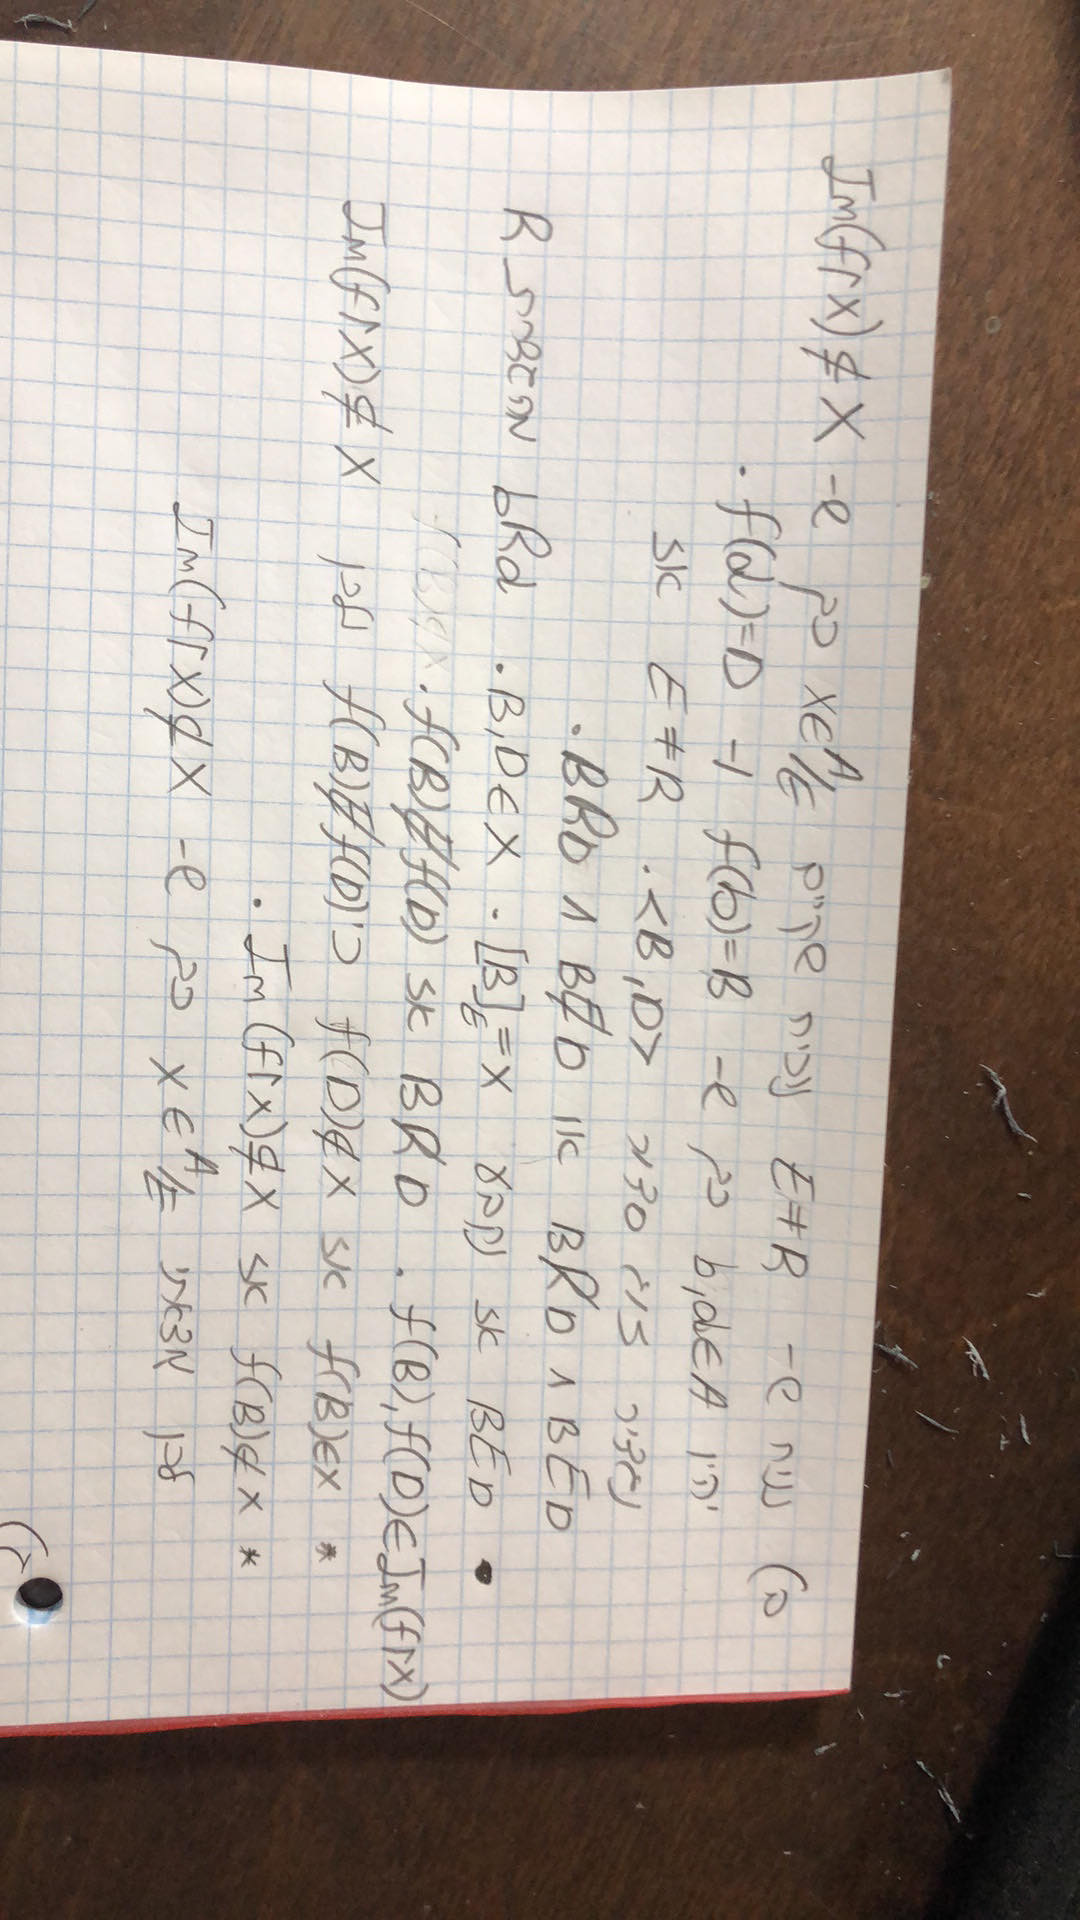 ב) נניח ש- E≠R נוכיח שקיים X∈A/E כך ש- Im(f↾X)⊄X
יהיו b,d∈A כך ש- f(b)=B ו- f(d)=D.
נגדיר זוג סדור <B,D>. E≠R אז
BED ∧ BR̸D או BE̸D ∧ BRD.
• BED אז נקבע [B]_E=X. B,D∈X. bRd מהגדרת R
f(B),f(D)∈Im(f↾X). BR̸D אז f(B)E̸f(D). f(B)∉X
* f(B)∈X אז f(D)∉X כי f(B)E̸f(D) ולכן Im(f↾X)⊄X
* f(B)∉X אז Im(f↾X)⊄X.
לכן מצאתי X∈A/E כך ש- Im(f↾X)⊄X
ג)